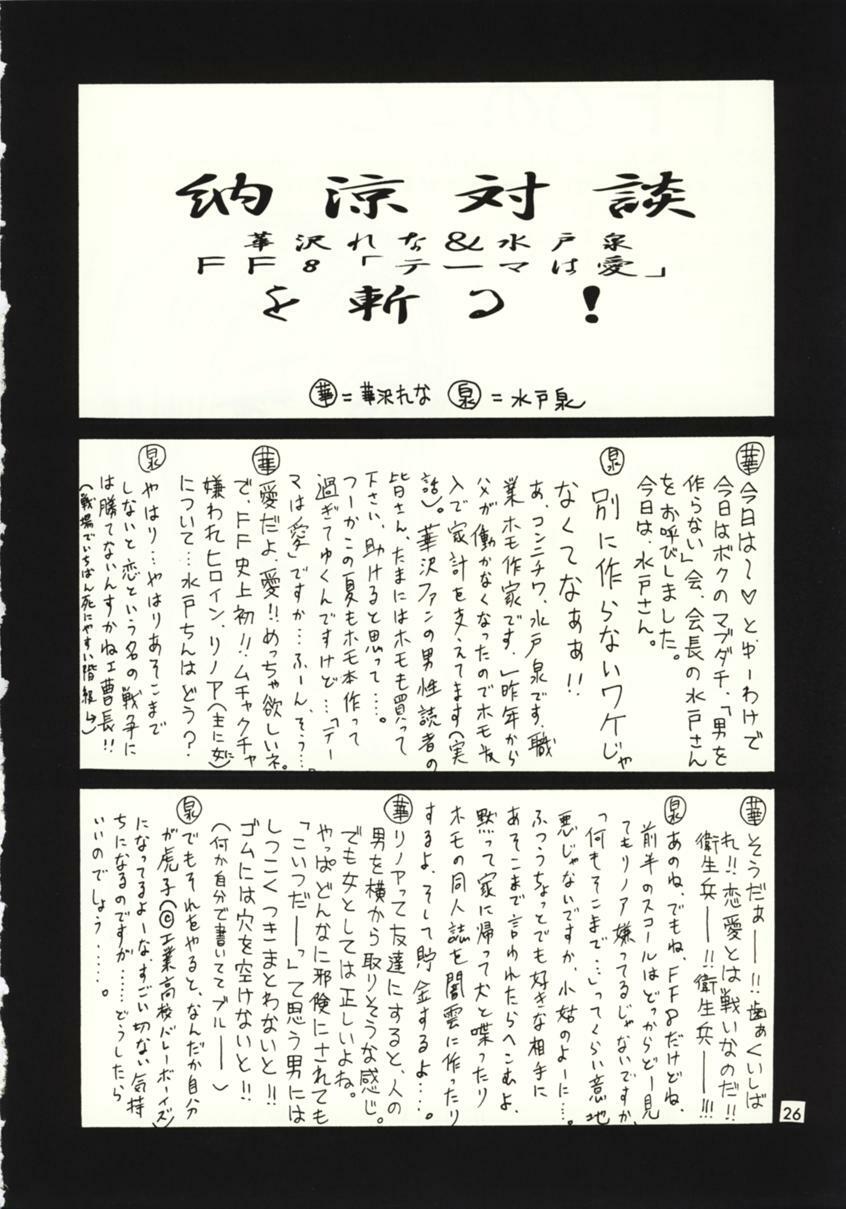 納涼対談
華沢れな&水戸泉
FF8「テーマは愛」
を斬る!
華=華沢れな 泉=水戸泉
華今日は〜♡と、ゆーわけで
今日はボクのマブダチ、「男を
作らない」会、会長の水戸さん
をお呼びしました。
今日は、水戸さん。
泉別に作らないワケじゃ
なくてなぁぁ!!
あ、コンニチワ、水戸泉です、職
業ホモ作家です、昨年から
父が働かなくなったのでホモ収
入で家計を支えてます(実
話)。華沢ファンの男性読者の
皆さん、たまにはホモも買って
下さい、助けると思って…。
つーかこの夏もホモ本作って
過ぎてゆくんですけど…「テー
マは愛」ですか…ふーん、そう…。
華愛だよ、愛!!めっちゃ欲しいネ。
で、FF史上初!!ムチャクチャ
嫌われヒロイン、リノア(主に女に)
について…水戸ちんはどう?
泉やはり…やはりあそこまで
しないと恋という名の戦争に
は勝てないんすかねェ曹長!!
(戦場でいちばん死にやすい階級↑)
華そうだぁー!!歯ぁくいしば
れ!!恋愛とは戦いなのだ!!
衛生兵ー!!衛生兵ー!!!
泉あのね、でもね、FF8だけどね、
前半のスコールはどっからどー見
てもリノア嫌ってるじゃないですか、
「何もそこまで…」ってくらい意地
悪じゃないですか、小姑のよーに…。
ふつうちょっとでも好きな相手に
あそこまで言われたらへこむよ、
黙って家に帰って犬と喋ったり
ホモの同人誌を闇雲に作ったり
するよ、そして貯金するよ…。
華リノアって友達にすると、人の
男を横から取りそうな感じ。
でも女としては正しいよね。
やっぱどんなに邪険にされても
「こいつだーっ」て思う男には
しつこくつきまとわないと!!
ゴムには穴を空けないと!!
(何か自分で書いててブルー)
泉でもそれをやると、なんだか自分
が虎子(©工業高校バレーボーイズ)
になってるよーな、すごい切ない気持
ちになるのですが……どうしたら
いいのでしょう……。
26